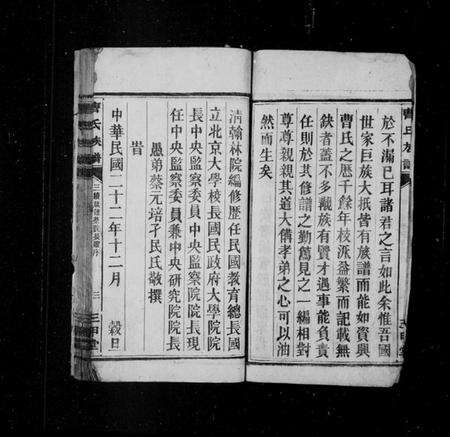 於不溺已耳諸君之言如此余惟吾國
世家巨族大抵皆有族譜而能如資興
曹氏之歷千餘年枝派益繁而記載無
缺者蓋不多覯族有賢才遇事能負責
任則於其修譜之勤萬見之一編相對
尊尊親親其道大備孝弟之心可以油
然而生矣
清翰林院編修歷任民國教育總長國
立北京大學校長國民政府大學院院
長中央監察委員中央監察院院長現
任中央監察委員兼中央研究院院長
愚弟蔡元培孑民氏敬撰
旹
中華民國二十二年十二月 穀旦
曹氏族譜
三
曹氏族譜